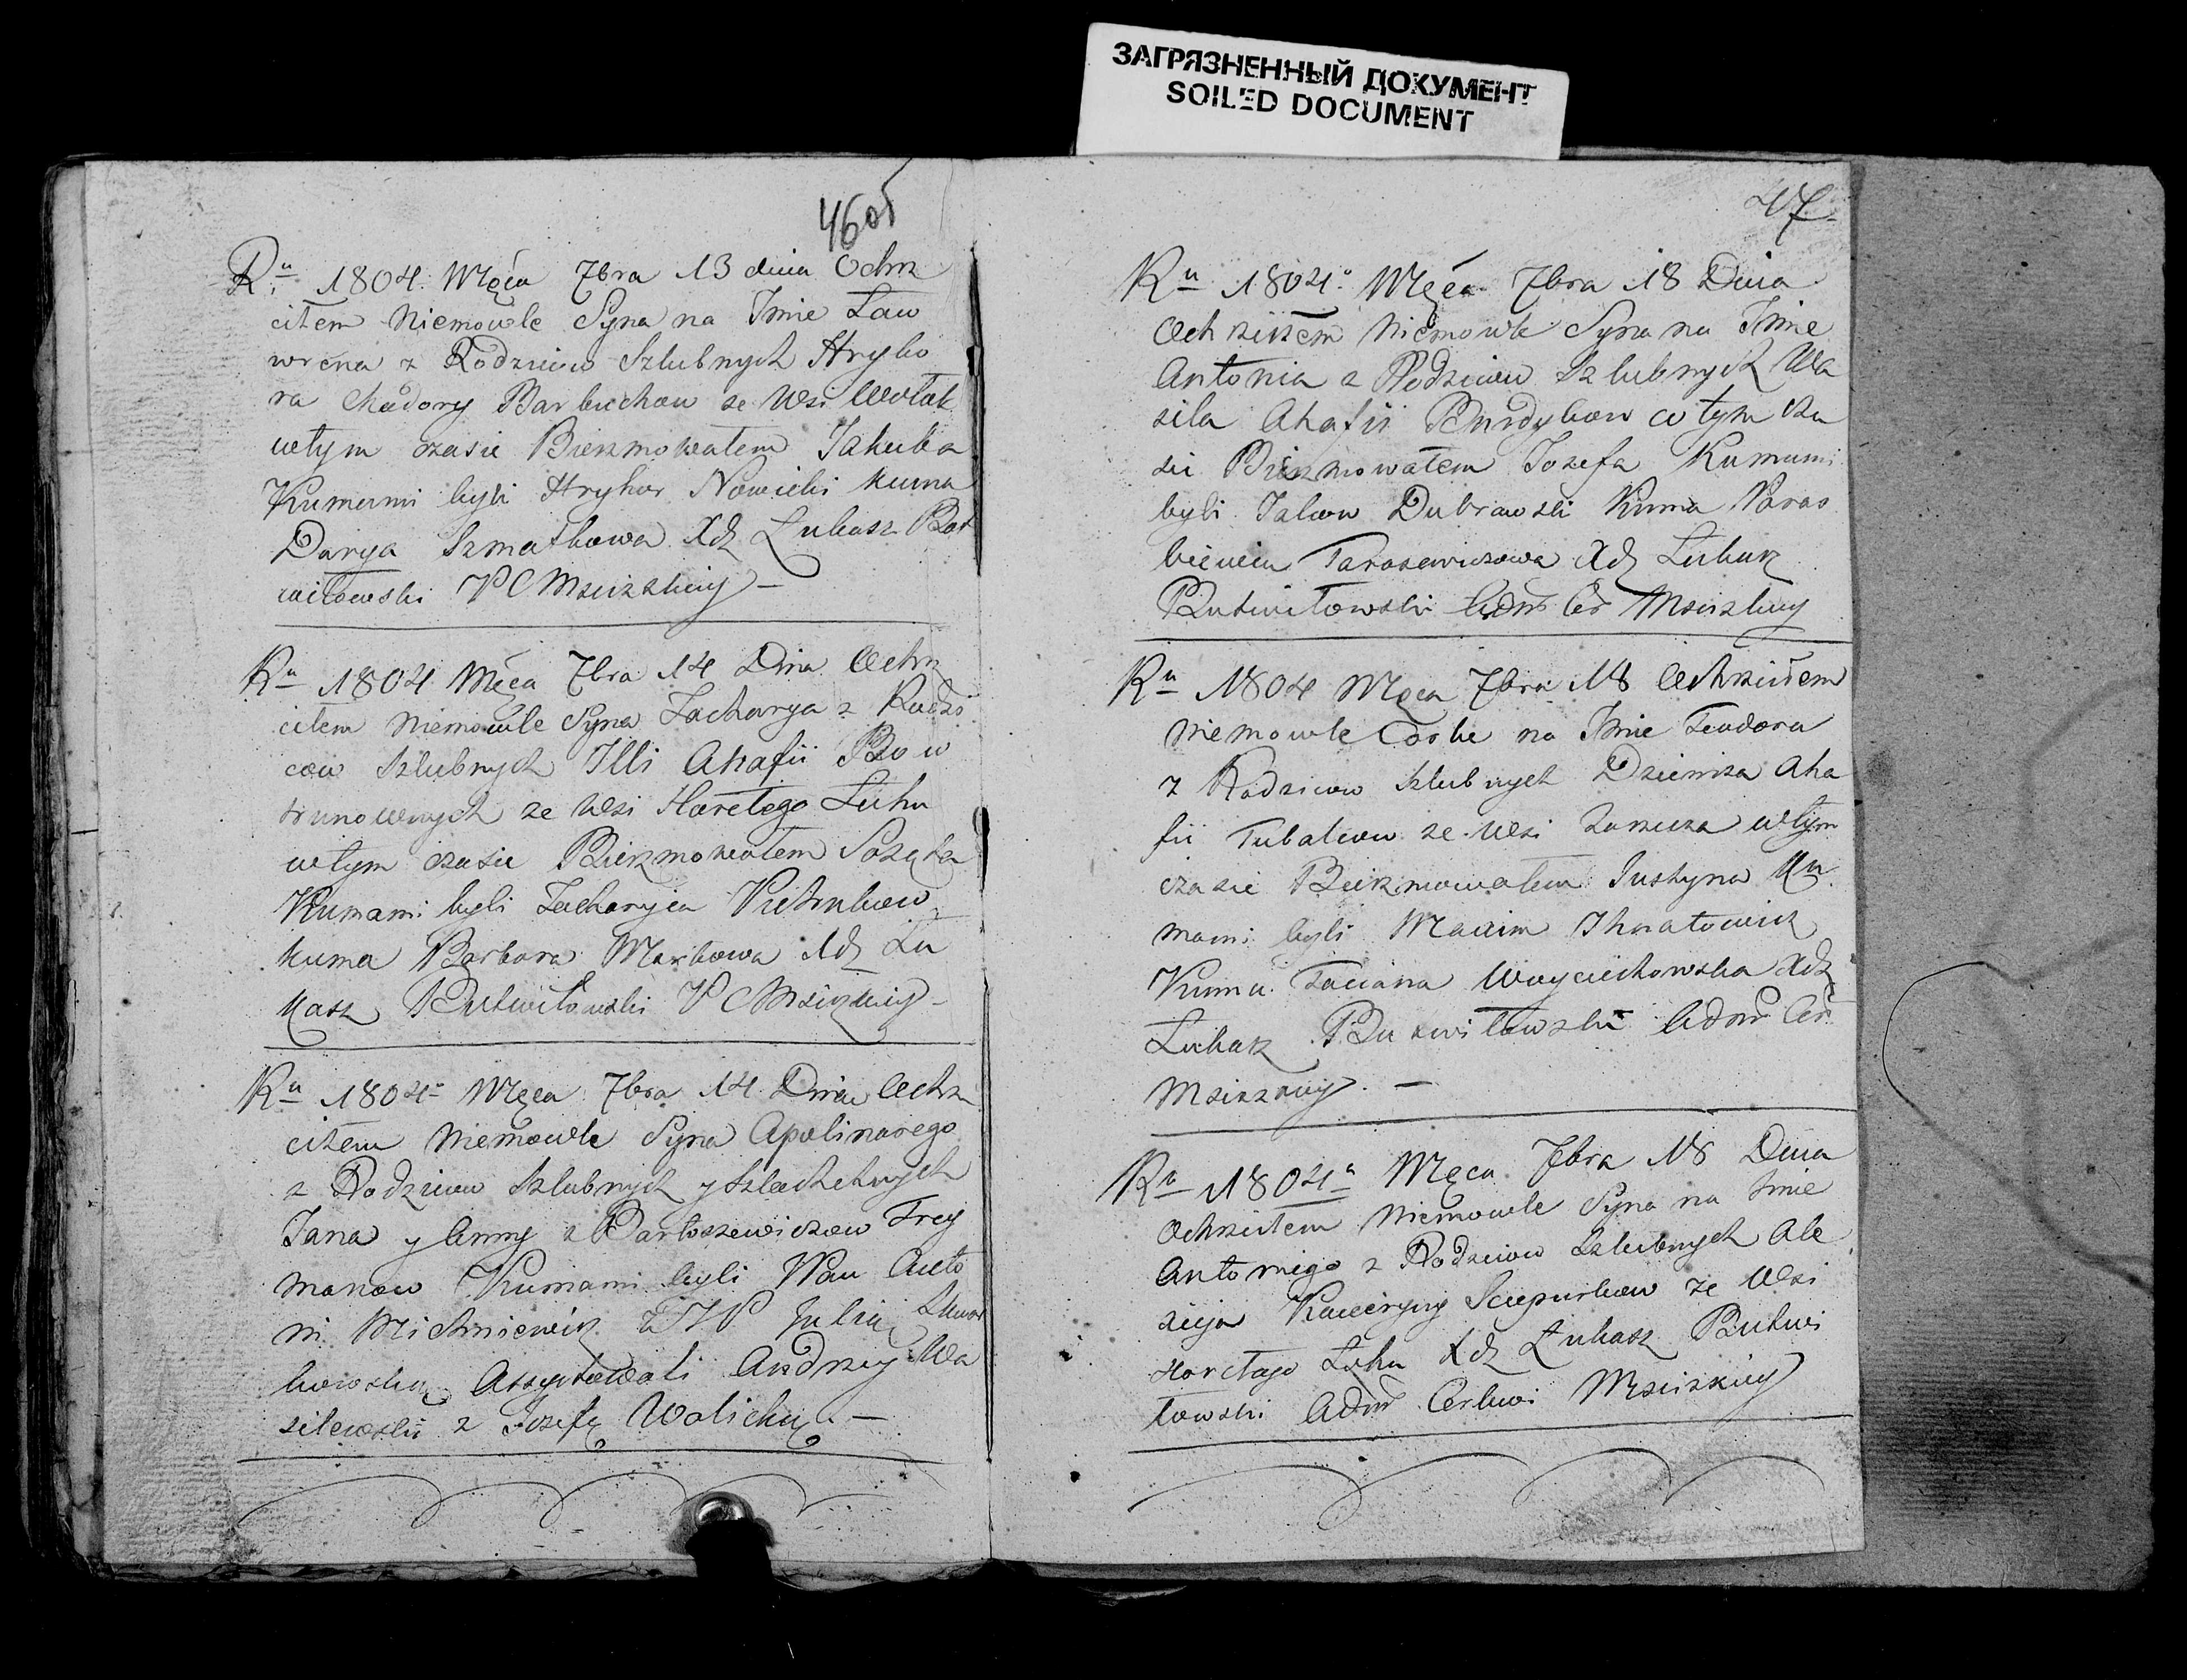 ЗАГРЯЗНЕННЫЙ ДОКУМЕНТ
SOILED DOCUMENT
46об
Ru 1804. Męca 7bra 13 dnia Ochrz
ciłem Niemowle Syna na Imie Ław
wrena z Rodziców Szlubnych Hryho
ra Chodory Barbuchow ze Wsi
wtym czasie Bierzmowałem Jakuba
Kumami byli Hryhor Nowicki kuma
Darya Szmatkowa Xdz Łukasz But
wiłowski P C Mscizskiey —
Ru 1804 Męca 7bra 14 Dnia Ochrz
ciłem Niemowle Syna Zacharya z Rodzi
cow Szlubnych Illi Ahafii
ze Wsi Horełego Łuhu
wtym czasie Bierzmowałem
Kumami byli Zacharyja
kuma Barbara Markowa Xdz Łu
kasz Butwiłowski P C Mscizskiey —
Ru 1804 Męca 7bra 14 Dnia Ochrz
ciłem Niemowle Syna Apolinarego
z Rodzicow Szlubnych y Szlachetnych
Jana y Anny z Bartoszewiczow Frey
manow Kumami byli Pan Anto
ni Michniewicz z Julią
Assystowali Andrzey Wa
silewski z Jozefą Wolicką. —
47
Ru 1804 Męca 7bra 18 Dnia
Ochrziłem Niemowle Syna na Imie
Antonia z Rodzicow Szlubnych Wa
sila Ahafii Burdykow w tym cza
sie Bierzmowałem Jozefa Kumami
byli Dubrowski Kuma Paras
Tarasewiczowa Xdz Łukasz
Butwiłowski Adm Cer Mscizskiey
Ru 1804 Męca 7bra 18 Ochrziłem
Niemowle Corke na Imie Teodora
z Rodzicow Szlubnych Dziemsza Aha
fii Tubalcow ze Wsi wtym
czasie Bierzmowałem Justyna Ku
mami byli Maxim Ihnatowicz
Kuma Taciana Woyciechowska Xdz
Łukasz Butwiłowski Adm Cer
Mscizskiey. —
Ru 1804 Męca 7bra 18 Dnia
Ochrziłem Niemowle Syna na Imie
Antoniego z Rodzicow Szlubnych Ale
xieja Kateryny ze Wsi
Horełego Łuhu Xdz Łukasz Butwi
łowski Adm Cerkwi Mscizskiey